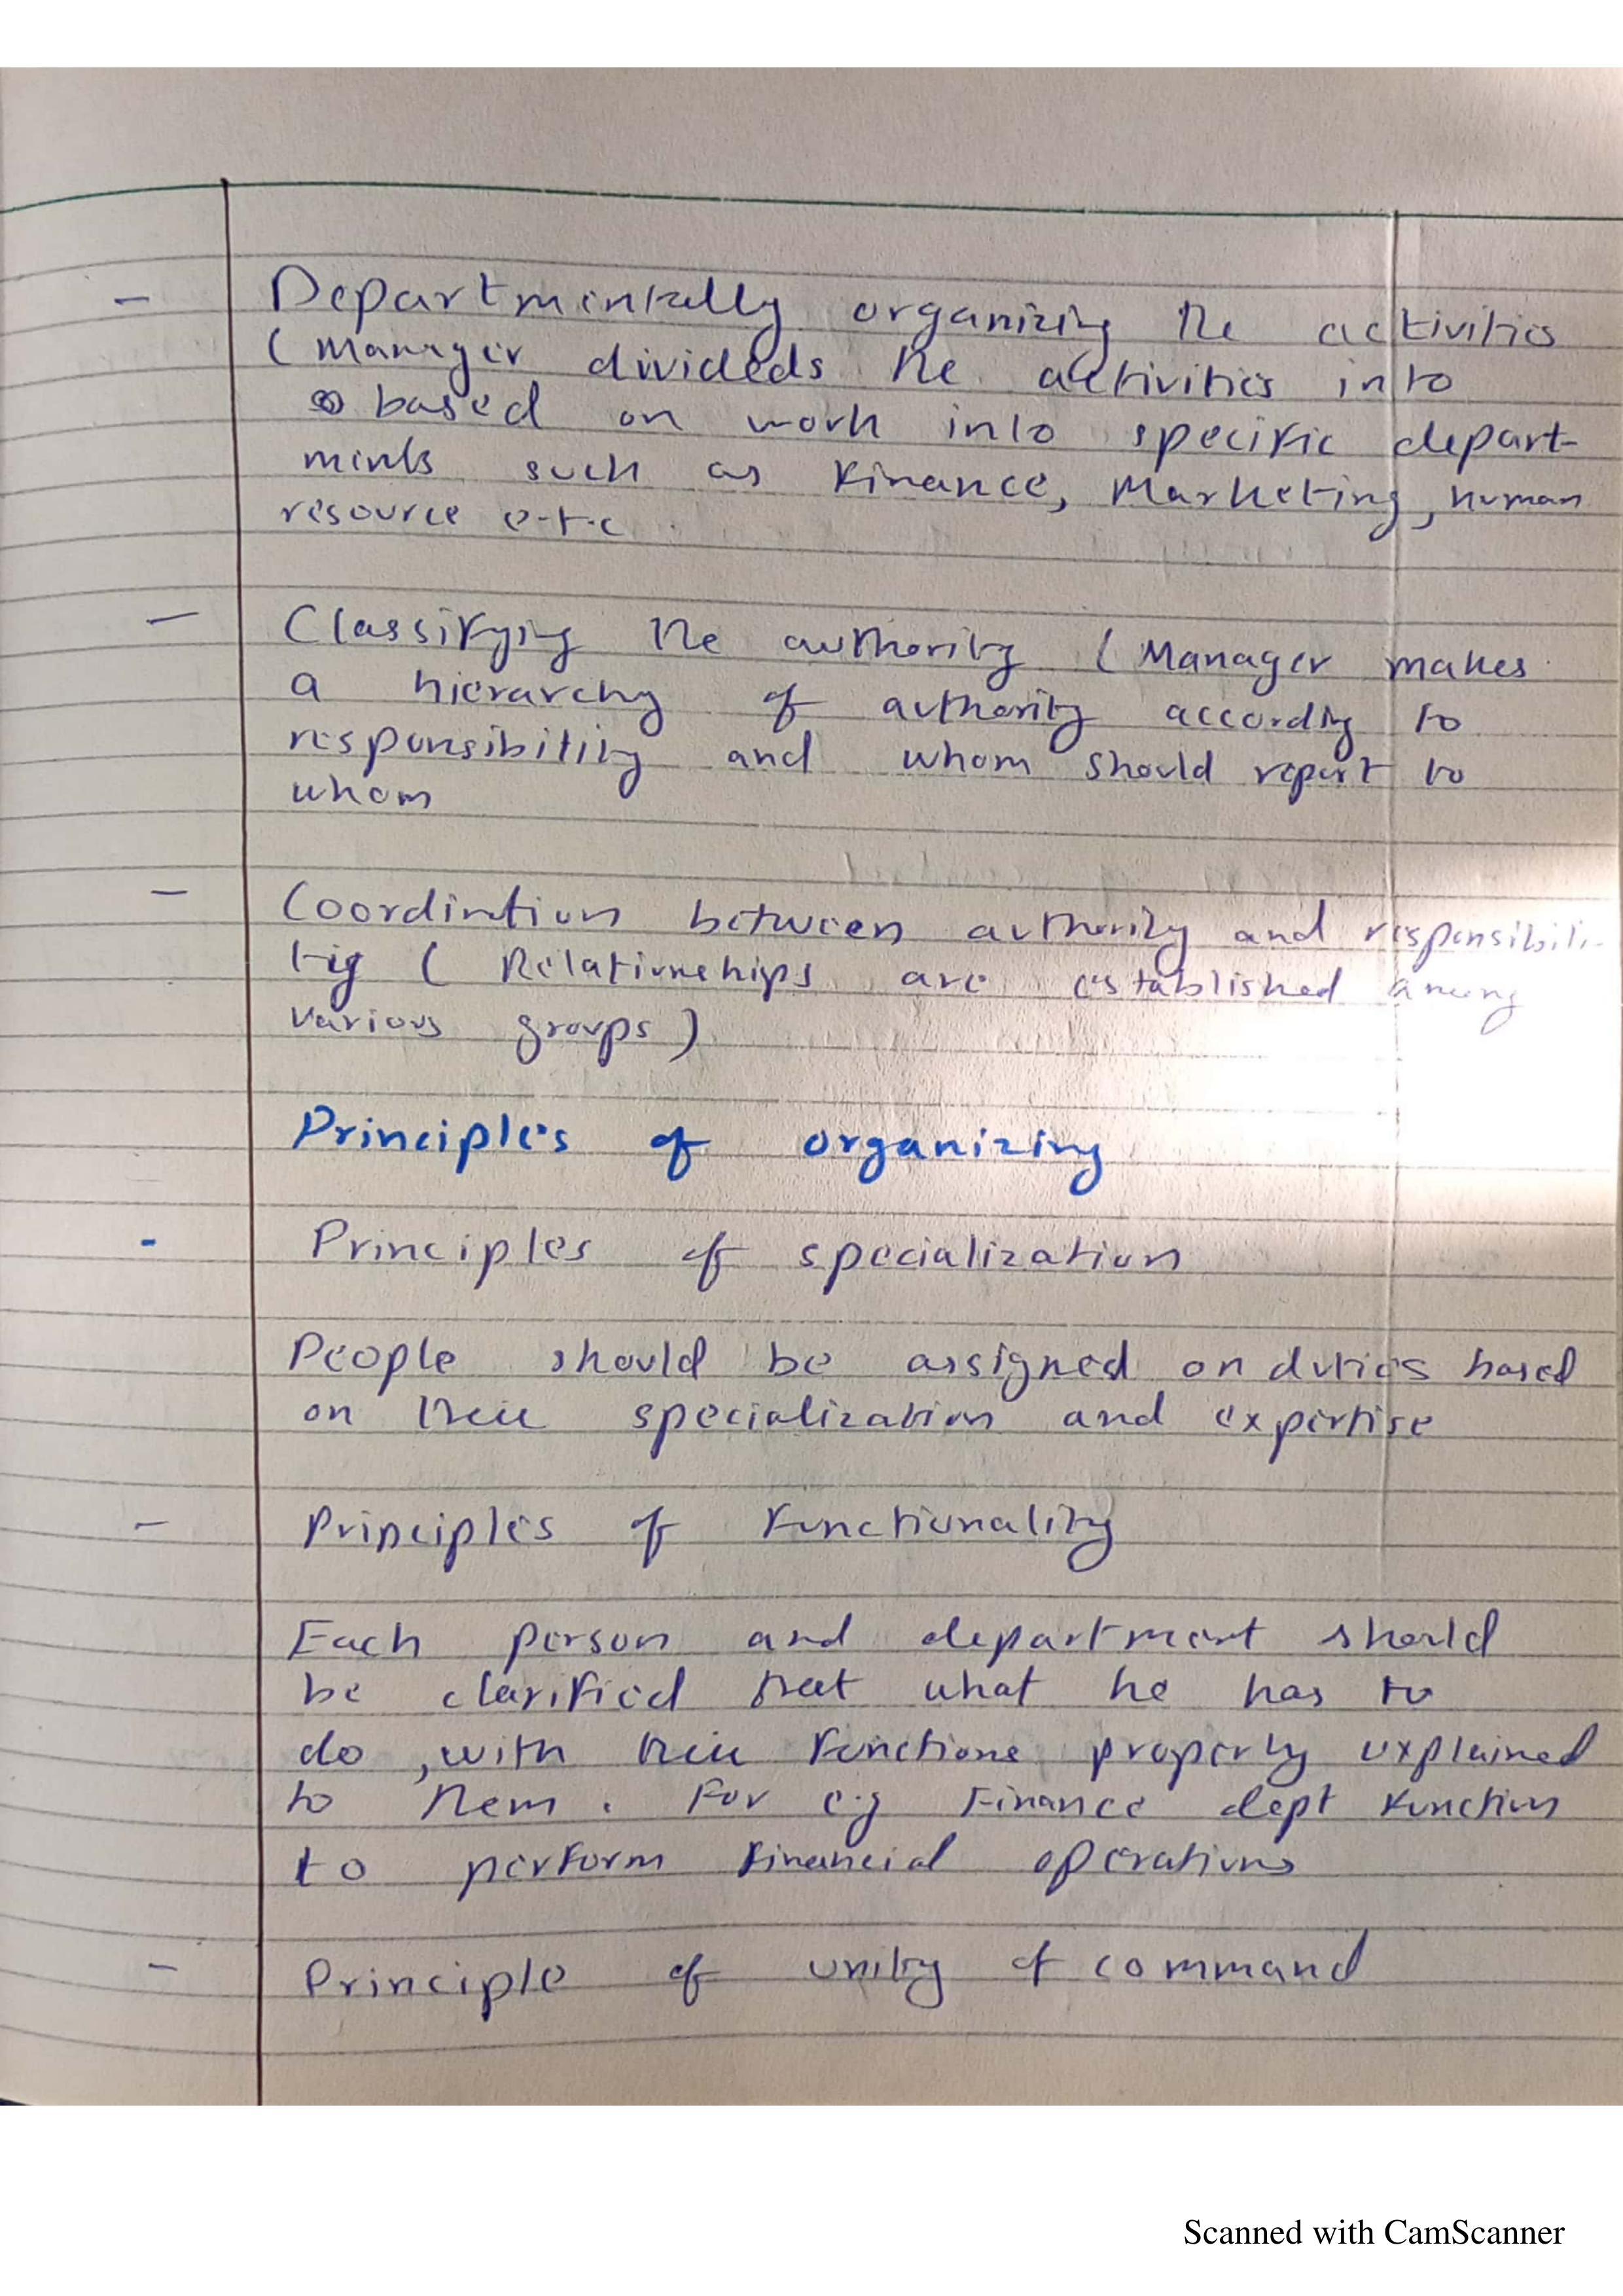 - Departmentally organizing the activities
( Manager divideds the activities into
based on work into specific depart-
ments such as Finance, Marketing, human
resource e.t.c
- Classifying the authority ( Manager makes
a hierarchy of authority according to
responsibility and whom should report to
whom
- Coordination between authority and responsibili-
tiy ( Relationships are established among
various groups )
Principles of organizing
- Principles of specialization
People should be assigned on duties based
on their specialization and expertise
- Principles of Functionality
Each person and department should
be clarified that what he has to
do , with their Functions properly explained
to them . For e.g Finance dept Function
to perform Financial operations
- Principle of unity of command
Scanned with CamScanner